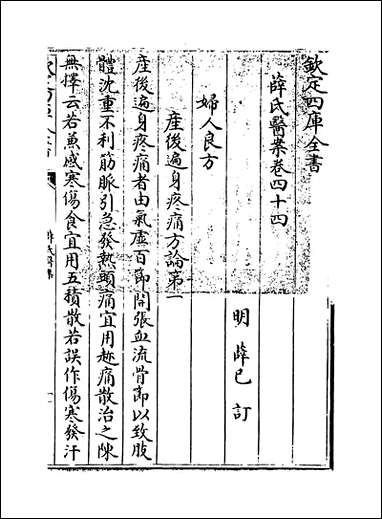 欽定四庫全書
薛氏醫案卷四十四
明 薛己 訂
婦人良方
産後遍身疼痛方論第一
産後遍身疼痛者由氣虚百節開張血流骨節以致肢
體沈重不利筋脈引急發熱頭痛宜用趂痛散治之陳
無擇云若兼感寒傷食宜用五積散若誤作傷寒發汗
薛氏醫案